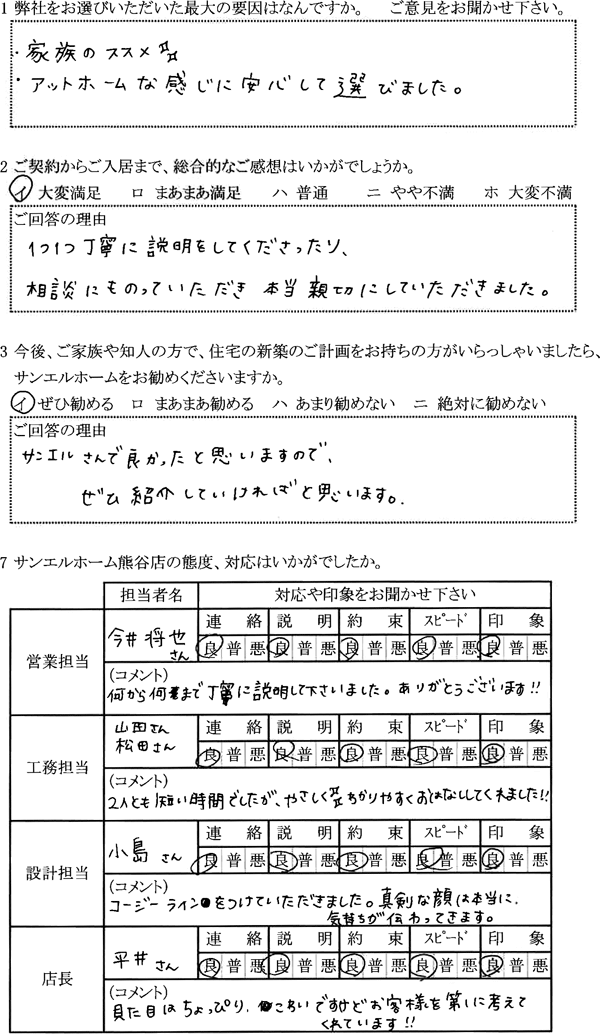 1 弊社をお選びいただいた最大の要因はなんですか。 ご意見をお聞かせ下さい。
・家族のススメ☆
・アットホームな感じに安心して選びました。
2 ご契約からご入居まで、総合的なご感想はいかがでしょうか。
イ 大変満足 ロ まあまあ満足 ハ 普通 ニ やや不満 ホ 大変不満
ご回答の理由
1つ1つ丁寧に説明をしてくださったり、
相談にものっていただき 本当 親切にしていただきました。
3 今後、ご家族や知人の方で、住宅の新築のご計画をお持ちの方がいらっしゃいましたら、
サンエルホームをお勧めくださいますか。
イ ぜひ勧める ロ まあまあ勧める ハ あまり勧めない ニ 絶対に勧めない
ご回答の理由
サンエルさんで良かったと思いますので、
ぜひ紹介していければと思います。
7 サンエルホーム熊谷店の態度、対応はいかがでしたか。
担当者名 対応や印象をお聞かせ下さい
営業担当 今井将也さん 連絡 説明 約束 スピード 印象
良 普 悪 良 普 悪 良 普 悪 良 普 悪 良 普 悪
(コメント)
何から何まで丁寧に説明して下さいました。ありがとうございます!!
工務担当 山田さん 松田さん 連絡 説明 約束 スピード 印象
良 普 悪 良 普 悪 良 普 悪 良 普 悪 良 普 悪
(コメント)
2人とも短い時間でしたが、やさしく☆わかりやすくおはなししてくれました!!
設計担当 小島さん 連絡 説明 約束 スピード 印象
良 普 悪 良 普 悪 良 普 悪 良 普 悪 良 普 悪
(コメント)
コージーラインをつけていただきました。真剣な顔は本当に、
気持ちが伝わってきます。
店長 平井さん 連絡 説明 約束 スピード 印象
良 普 悪 良 普 悪 良 普 悪 良 普 悪 良 普 悪
(コメント)
見た目はちょっぴり、こわいですけどお客様を第一に考えて
くれています!!